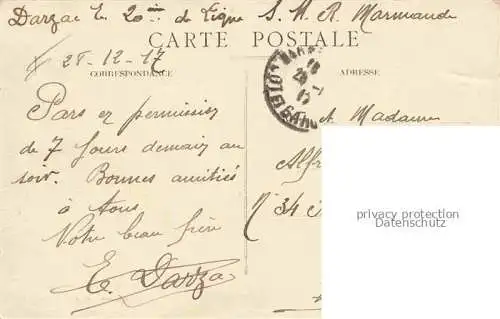 Darzac E. 20ème de Ligne S. H. R. Marmande
CARTE POSTALE
28-12-17
CORRESPONDANCE
ADRESSE
LOT-ET-GARONNE
Pars en permission
de 7 jours demain au
soir. Bonnes amitiés
à tous
Votre beau frère
E. Darza
et Madame
Alfr
N° 34
privacy protection
Datenschutz